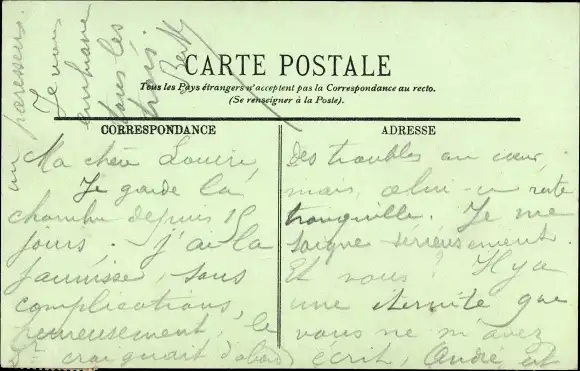 CARTE POSTALE
Tous les Pays étrangers n'acceptent pas la Correspondance au recto.
(Se renseigner à la Poste).
CORRESPONDANCE
Ma chère Louise,
Je garde la
chambre depuis 15
jours. J'ai la
jaunisse, sans
complications,
heureusement, le
Dr craignait d'abord
ADRESSE
des troubles au cœur,
mais, celui-ci reste
tranquille. Je me
soigne sérieusement.
Et vous? Il y a
une éternité que
vous ne m'avez
écrit, André est
un paresseux.
Je vous
embrasse
tous les
trois.